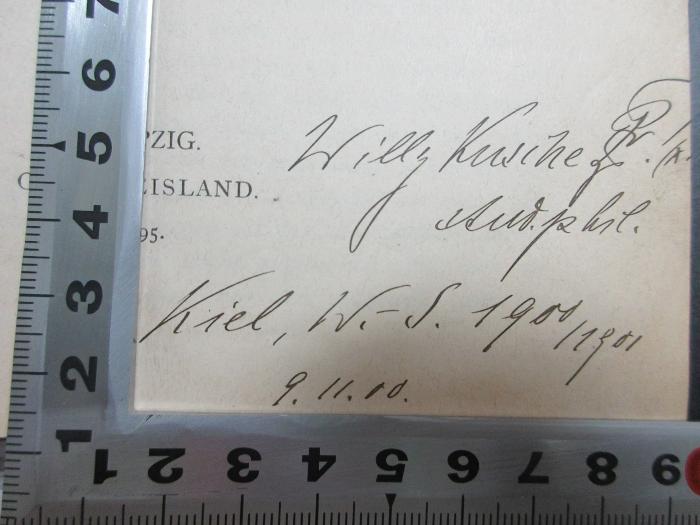 PZIG.
EISLAND.
95.
Willy
stud. phil.
Kiel, W.-S. 1900/1901
9.11.00.
7
6
5
4
3
2
1
1 2 3 4 5 6 7 8 9